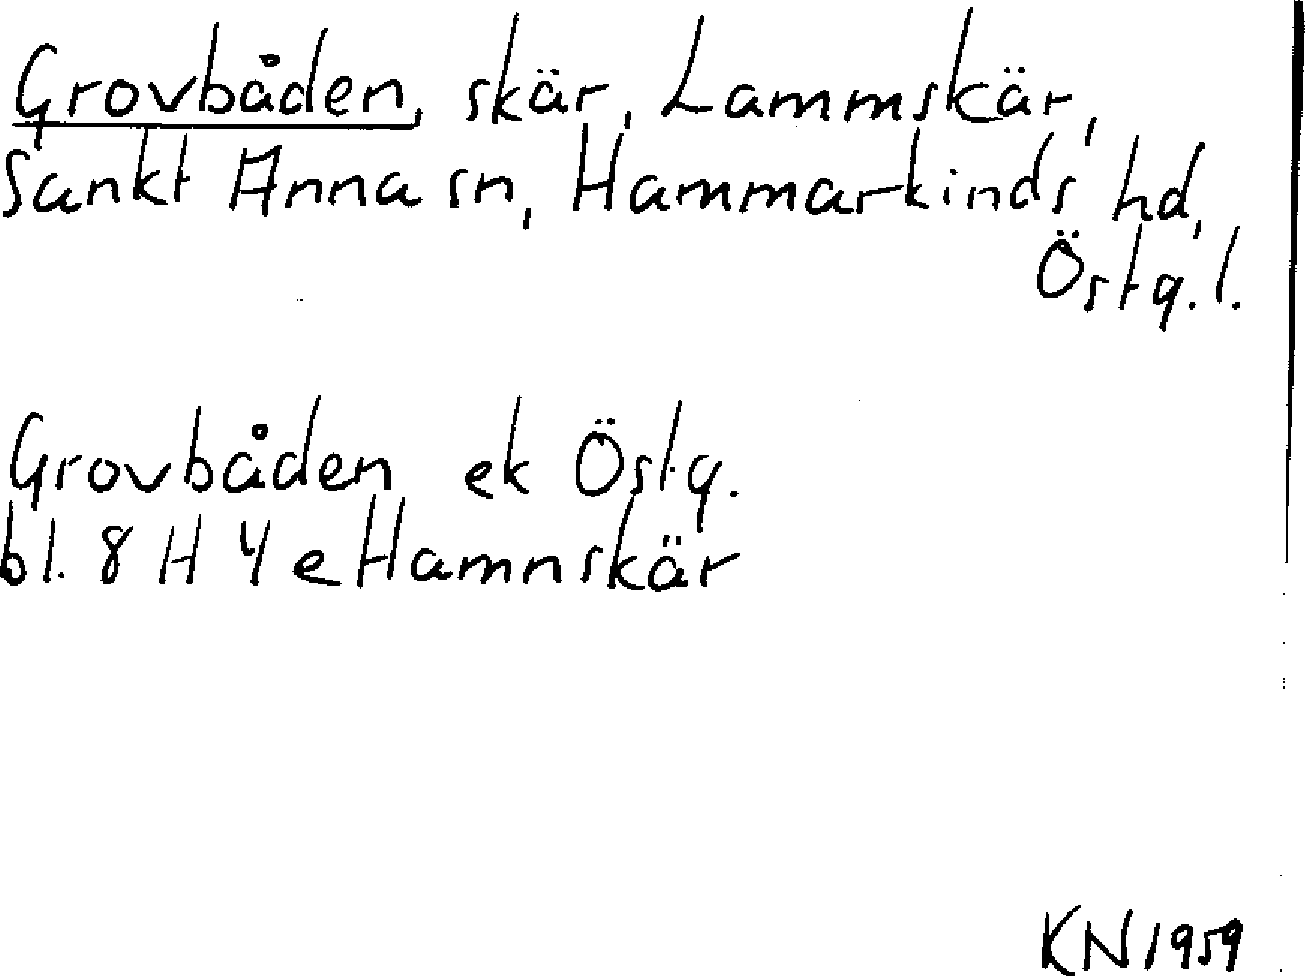 Grovbåden, skär, Lammskär,
Sankt Anna sn, Hammarkinds hd,
Östg. l.
Grovbåden ek Östg.
bl. 8 H 4 e Hamnskär
KN 1959